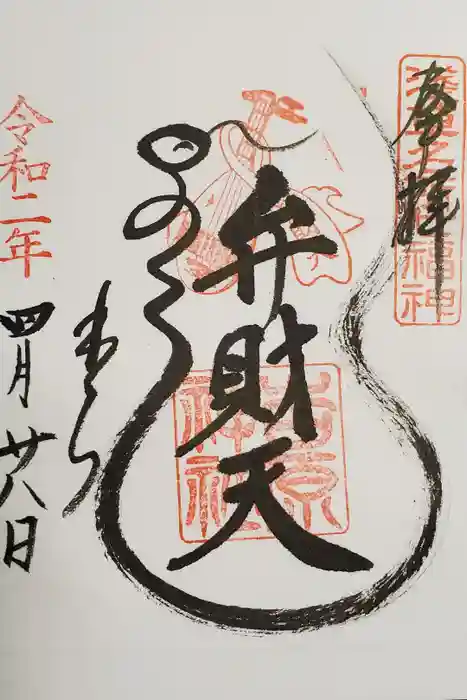 奉拝
福神
弁財天
吉原
神社
令和二年
四月廿八日